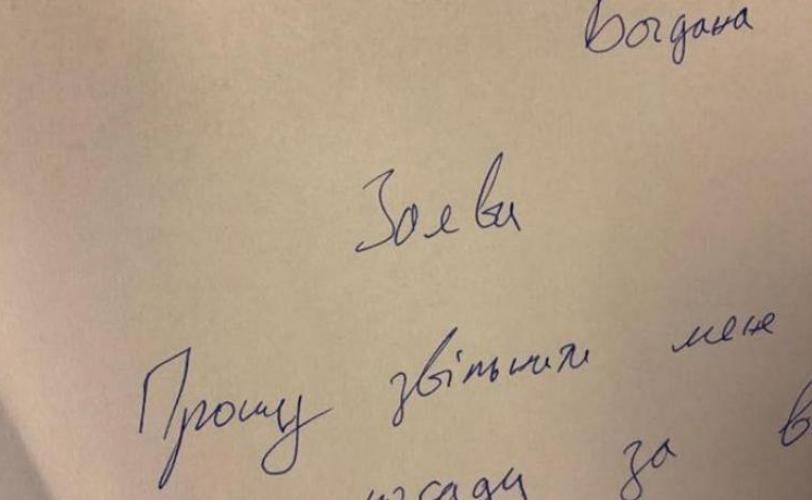 Богдана
Заява
Прошу звільнити мене
посади за